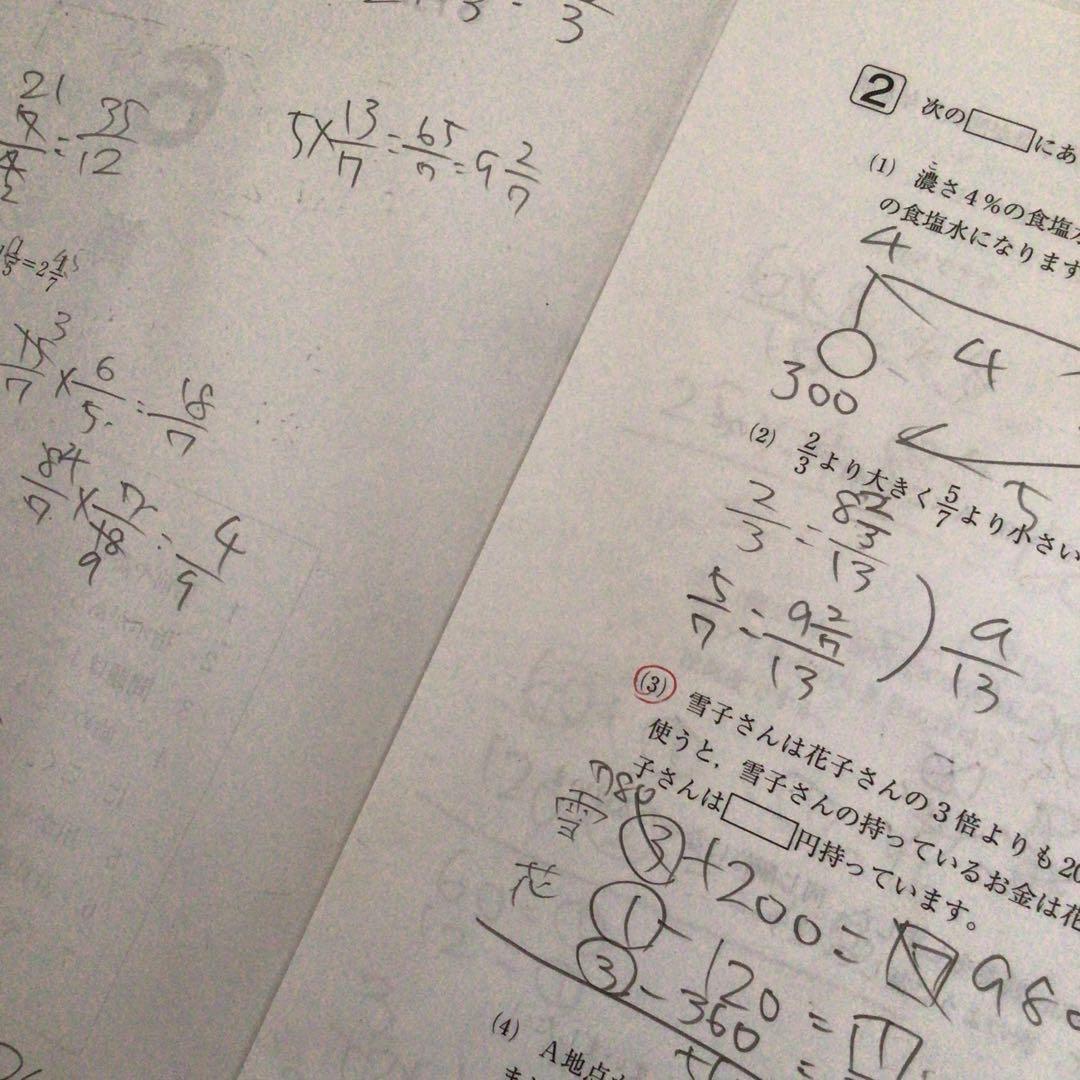 21
= 35/12
5 × 13/7 = 65/7 = 9 2/7
× 6/5 = 18/7
= 4/9
2 次の□にあ
(1) 濃さ4%の食塩
こ
の食塩水になります
4
4
300
5
(2) 2/3より大きく5/7より小さい
2/3 = 8 2/3/13
5/7 = 9 2/7/13
) 9/13
(3) 雪子さんは花子さんの3倍よりも20
使うと,雪子さんの持っているお金は花
子さんは□円持っています。
780
雪 ③ + 200 = 7 980
花 ① - 120 = 1
③ - 360 =
(4) A地点